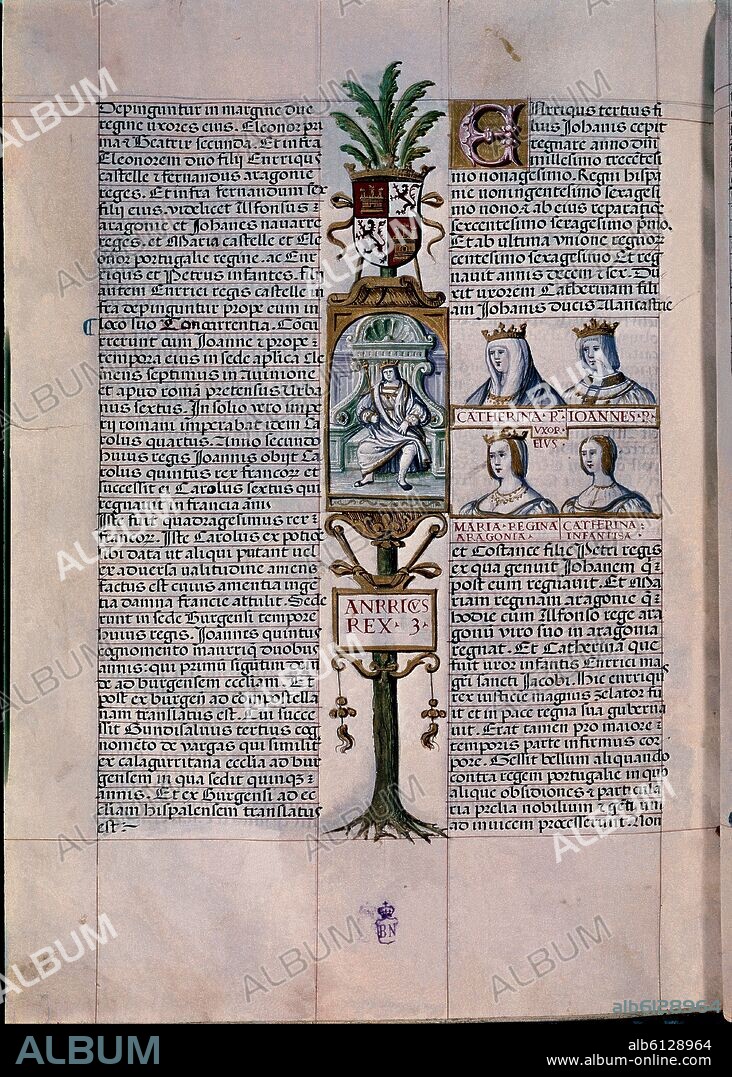 Depinguntur in margine due
regine uxores eius. Eleonor pri
ma ⁊ Beatrix secunda. Et infra
Eleonorem duo filij Enrriqus
castelle ⁊ fernandus aragonie
reges. Et infra fernandum sex
filij eius videlicet Alfonsus ⁊
aragonie et Johanes navarre
reges. et Maria castelle et Ele
onor portugalie regine. ac Enr
riqus et Petrus infantes. Fili
autem Enrrici regis castelle in
fra depinguntur prope eum in
loco suo Concurrentia. Concu
rrerunt cum Joanne ⁊ prope ⁊
tempora eius in sede aplica Cle
mens septimus in Avinione
et apud romã pretensus Urba
nus sextus. In solio vero impe
rij romani imperabat idem Ca
rolus quartus. Anno secundo
huius regis Joannis obijt Ca
rolus quintus rex francorũ et
successit ei Carolus sextus qui
regnavit in francia annis
Iste fuit quadragesimus rex ⁊
francorũ. Iste Carolus ex potice
sibi data ut aliqui putant vel
ex adversa valitudine amens
factus est cuius amentia inge
tia damna francie attulit. Sede
runt in sede Burgensi tempore
huius regis. Joannes quintus
cognomento maurriq duobus
annis: qui primũ
ex ad burgensem eccliam. Et
post ex burgen̄ ad compostella
nam translatus est. Cui succe
ssit Gundisalvus tertius cog
nometo de vargas qui similit̃
ex calagurritana ecclia ad bur
gensem in qua sedit quinq3 ⁊
annis. Et ex Burgensi ad ec
cliam hispalensem translatus
est
ANRRICVS
REX · 3 ·
ENrriqus tertius fi
lius Johanis cepit
regnare anno dñi
millesimo trecẽtesi
mo nonagesimo. Regni hispa
nie noningentesimo sexagesi
mo nono ⁊ ab eius reparatiõe
sexcentesimo sexagesimo primo.
Et ab ultima unione regnorũ
centesimo sexagesimo Et reg
navit annis decem ⁊ sex. Du
xit uxorem Catherinam fili
am Johanis ducis Alancastrie
CATHERINA · R̃ · IOANNES · R̃ ·
VXOR ·
EIVS
MARIA · REGINA
ARAGONIA ·
CATHERINA ·
INFANTISA ·
et Costance filie Petri regis
ex qua genuit Johanem q̃
post eum regnavit. Et Ma
riam reginam aragonie q̃
hodie cum Alfonso rege ara
gonũ viro suo in aragonia
regnat. Et Catherina que
fuit uxor infantis Enrrici ma
gri sancti Jacobi. Hic enrriqus
rex iusticie magnus zelator fu
it et in pace regna sua guberna
vit. Erat tamen pro maiore ⁊
temporis parte infirmus cor
pore. Gessit bellum aliquando
contra regem portugalie in quo
alique obsidiones ⁊ particula
ria prelia nobilium ⁊ gẽtium
ad invicem processerunt. Non
BN
ALBUM
alb6128964
alb6128964
www.album-online.com